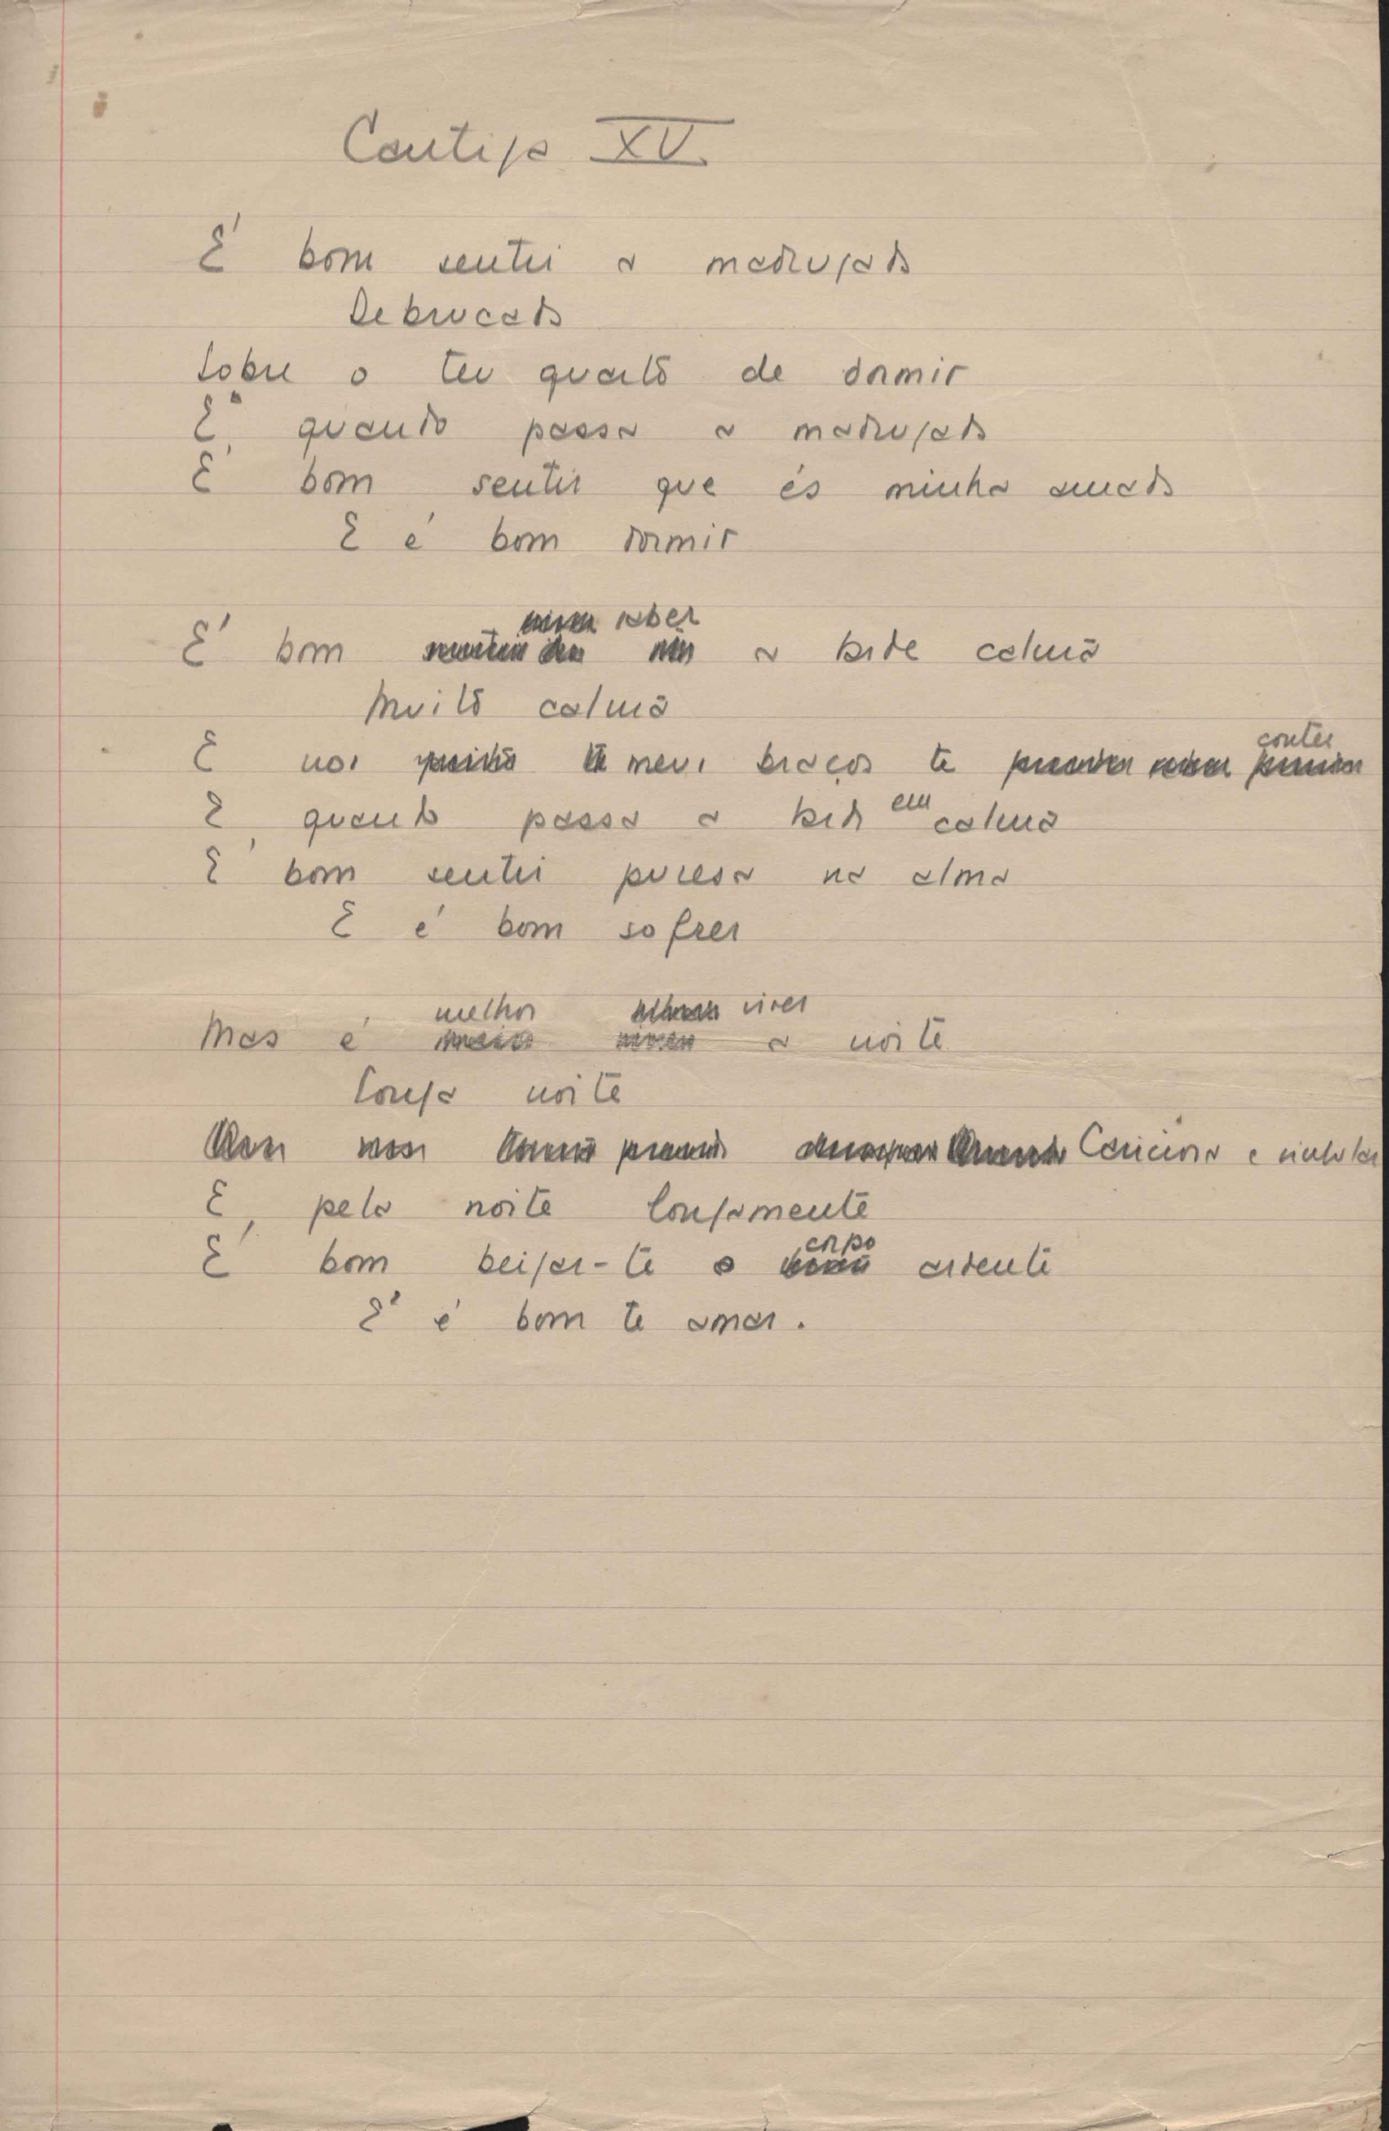 Cantiga XV
É bom sentir a madrugada
Debruçada
Sobre o teu quarto de dormir
E, quando passa a madrugada
É bom sentir que és minha amada
E é bom dormir
saber
É bom a tarde calma
Muito calma
conter
E nos meus braços te
E, quando passa a tarde em calma
É bom sentir pureza na alma
E é bom sofrer
melhor viver
Mas é a noite
Longa noite
Cariciosa e
E, pela noite longamente
corpo
É bom beijar-te o ardente
E é bom te amar.